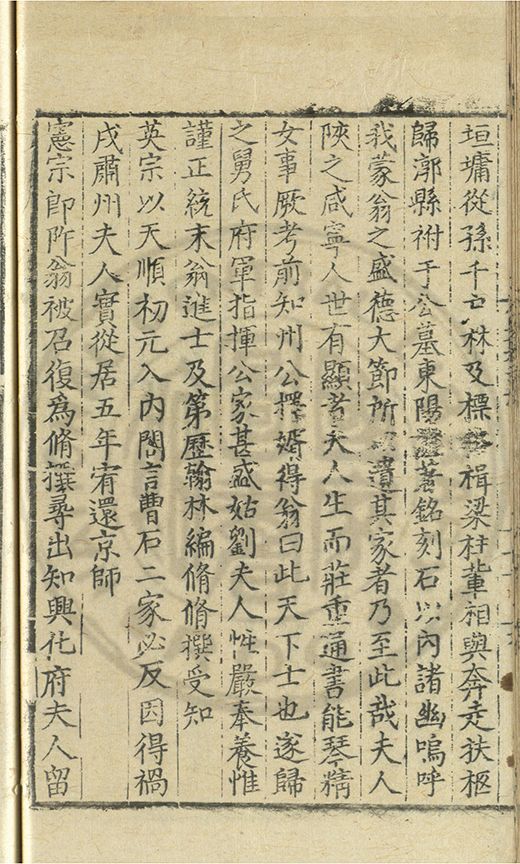 垣墉從孫千戶林及標 楫梁柱輩相與奔走扶柩
歸漷縣祔于公墓東陽 著銘刻石以內諸幽嗚呼
我蒙翁之盛德大節所 遺其家者乃至此哉夫人
陝之咸寧人世有顯者夫人生而莊重通書能琴精
女事厥考前知州公擇婿得翁曰此天下士也遂歸
之舅氏府軍指揮公家甚盛姑劉夫人性嚴奉養惟
謹正統末翁進士及第歷翰林編脩脩撰受知
英宗以天順初元入內閣言曹石二家必反因得禍
戍肅州夫人實從居五年宥還京師
憲宗即阼翁被召復為脩撰尋出知興化府夫人留